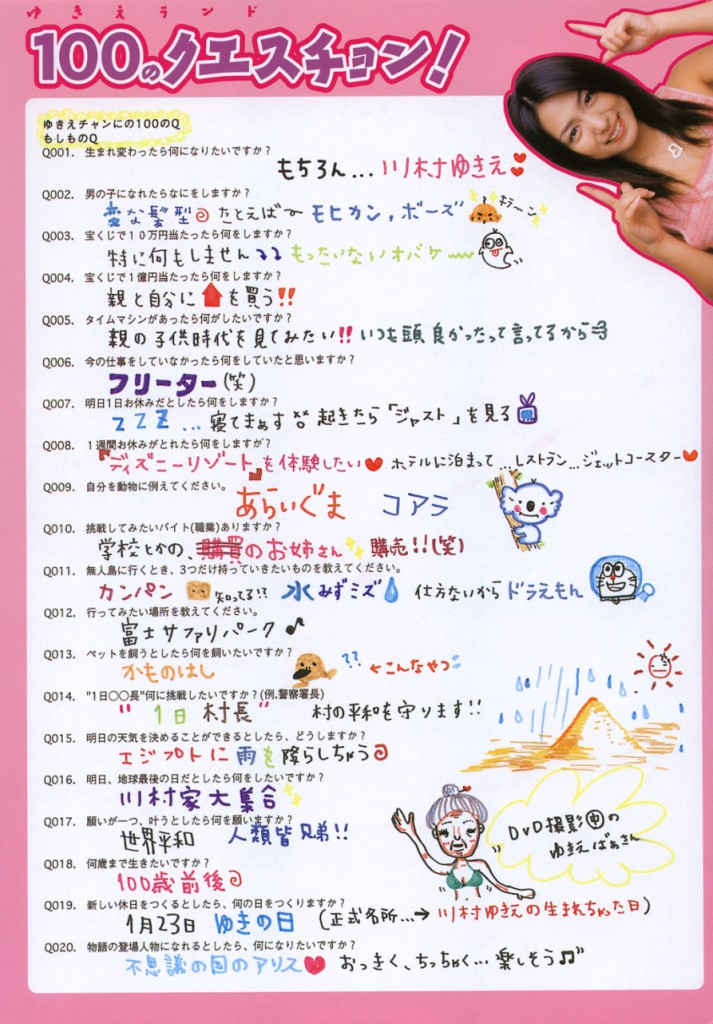 ゆきえランド
100のクエスチョン!
ゆきえチャンにの100のQ
もしものQ
Q001. 生まれ変わったら何になりたいですか?
もちろん...川村ゆきえ♥
Q002. 男の子になれたらなにをしますか?
変な髪型 たとえば〜 モヒカン,ボーズ キラーン
Q003. 宝くじで10万円当たったら何をしますか?
特に何もしません もったいないオバケ〜
Q004. 宝くじで1億円当たったら何をしますか?
親と自分に を買う!!
Q005. タイムマシンがあったら何がしたいですか?
親の子供時代を見てみたい!! いつも頭良かったって言ってるから
Q006. 今の仕事をしていなかったら何をしていたと思いますか?
フリーター(笑)
Q007. 明日1日お休みだとしたら何をしますか?
ZZZ...寝てまぁす 起きたら「ジャスト」を見る
Q008. 1週間お休みがとれたら何をしますか?
『ディズニーリゾート』を体験したい♥ ホテルに泊まって...レストラン...ジェットコースター♥
Q009. 自分を動物に例えてください。
あらいぐま コアラ
Q010. 挑戦してみたいバイト(職業)ありますか?
学校とかの、購買のお姉さん 購売!!(笑)
Q011. 無人島に行くとき、3つだけ持っていきたいものを教えてください。
カンパン 知ってる!? 水みずミズ 仕方ないからドラえもん
Q012. 行ってみたい場所を教えてください。
富士サファリパーク♪
Q013. ペットを飼うとしたら何を飼いたいですか?
かものはし ?? ←こんなやつ
Q014. "1日〇〇長"何に挑戦したいですか?(例.警察署長)
"1日村長" 村の平和を守ります!!
Q015. 明日の天気を決めることができるとしたら、どうしますか?
エジプトに雨を降らしちゃう
Q016. 明日、地球最後の日だとしたら何をしたいですか?
川村家大集合
Q017. 願いが一つ、叶うとしたら何を願いますか?
世界平和 人類皆兄弟!!
DVD撮影中の
ゆきえばぁさん
Q018. 何歳まで生きたいですか?
100歳前後
Q019. 新しい休日をつくるとしたら、何の日をつくりますか?
1月23日 ゆきの日 (正式名所...→川村ゆきえの生まれちゃった日)
Q020. 物語の登場人物になれるとしたら、何になりたいですか?
不思議の国のアリス♥ おっきく、ちっちゃく...楽しそう♫